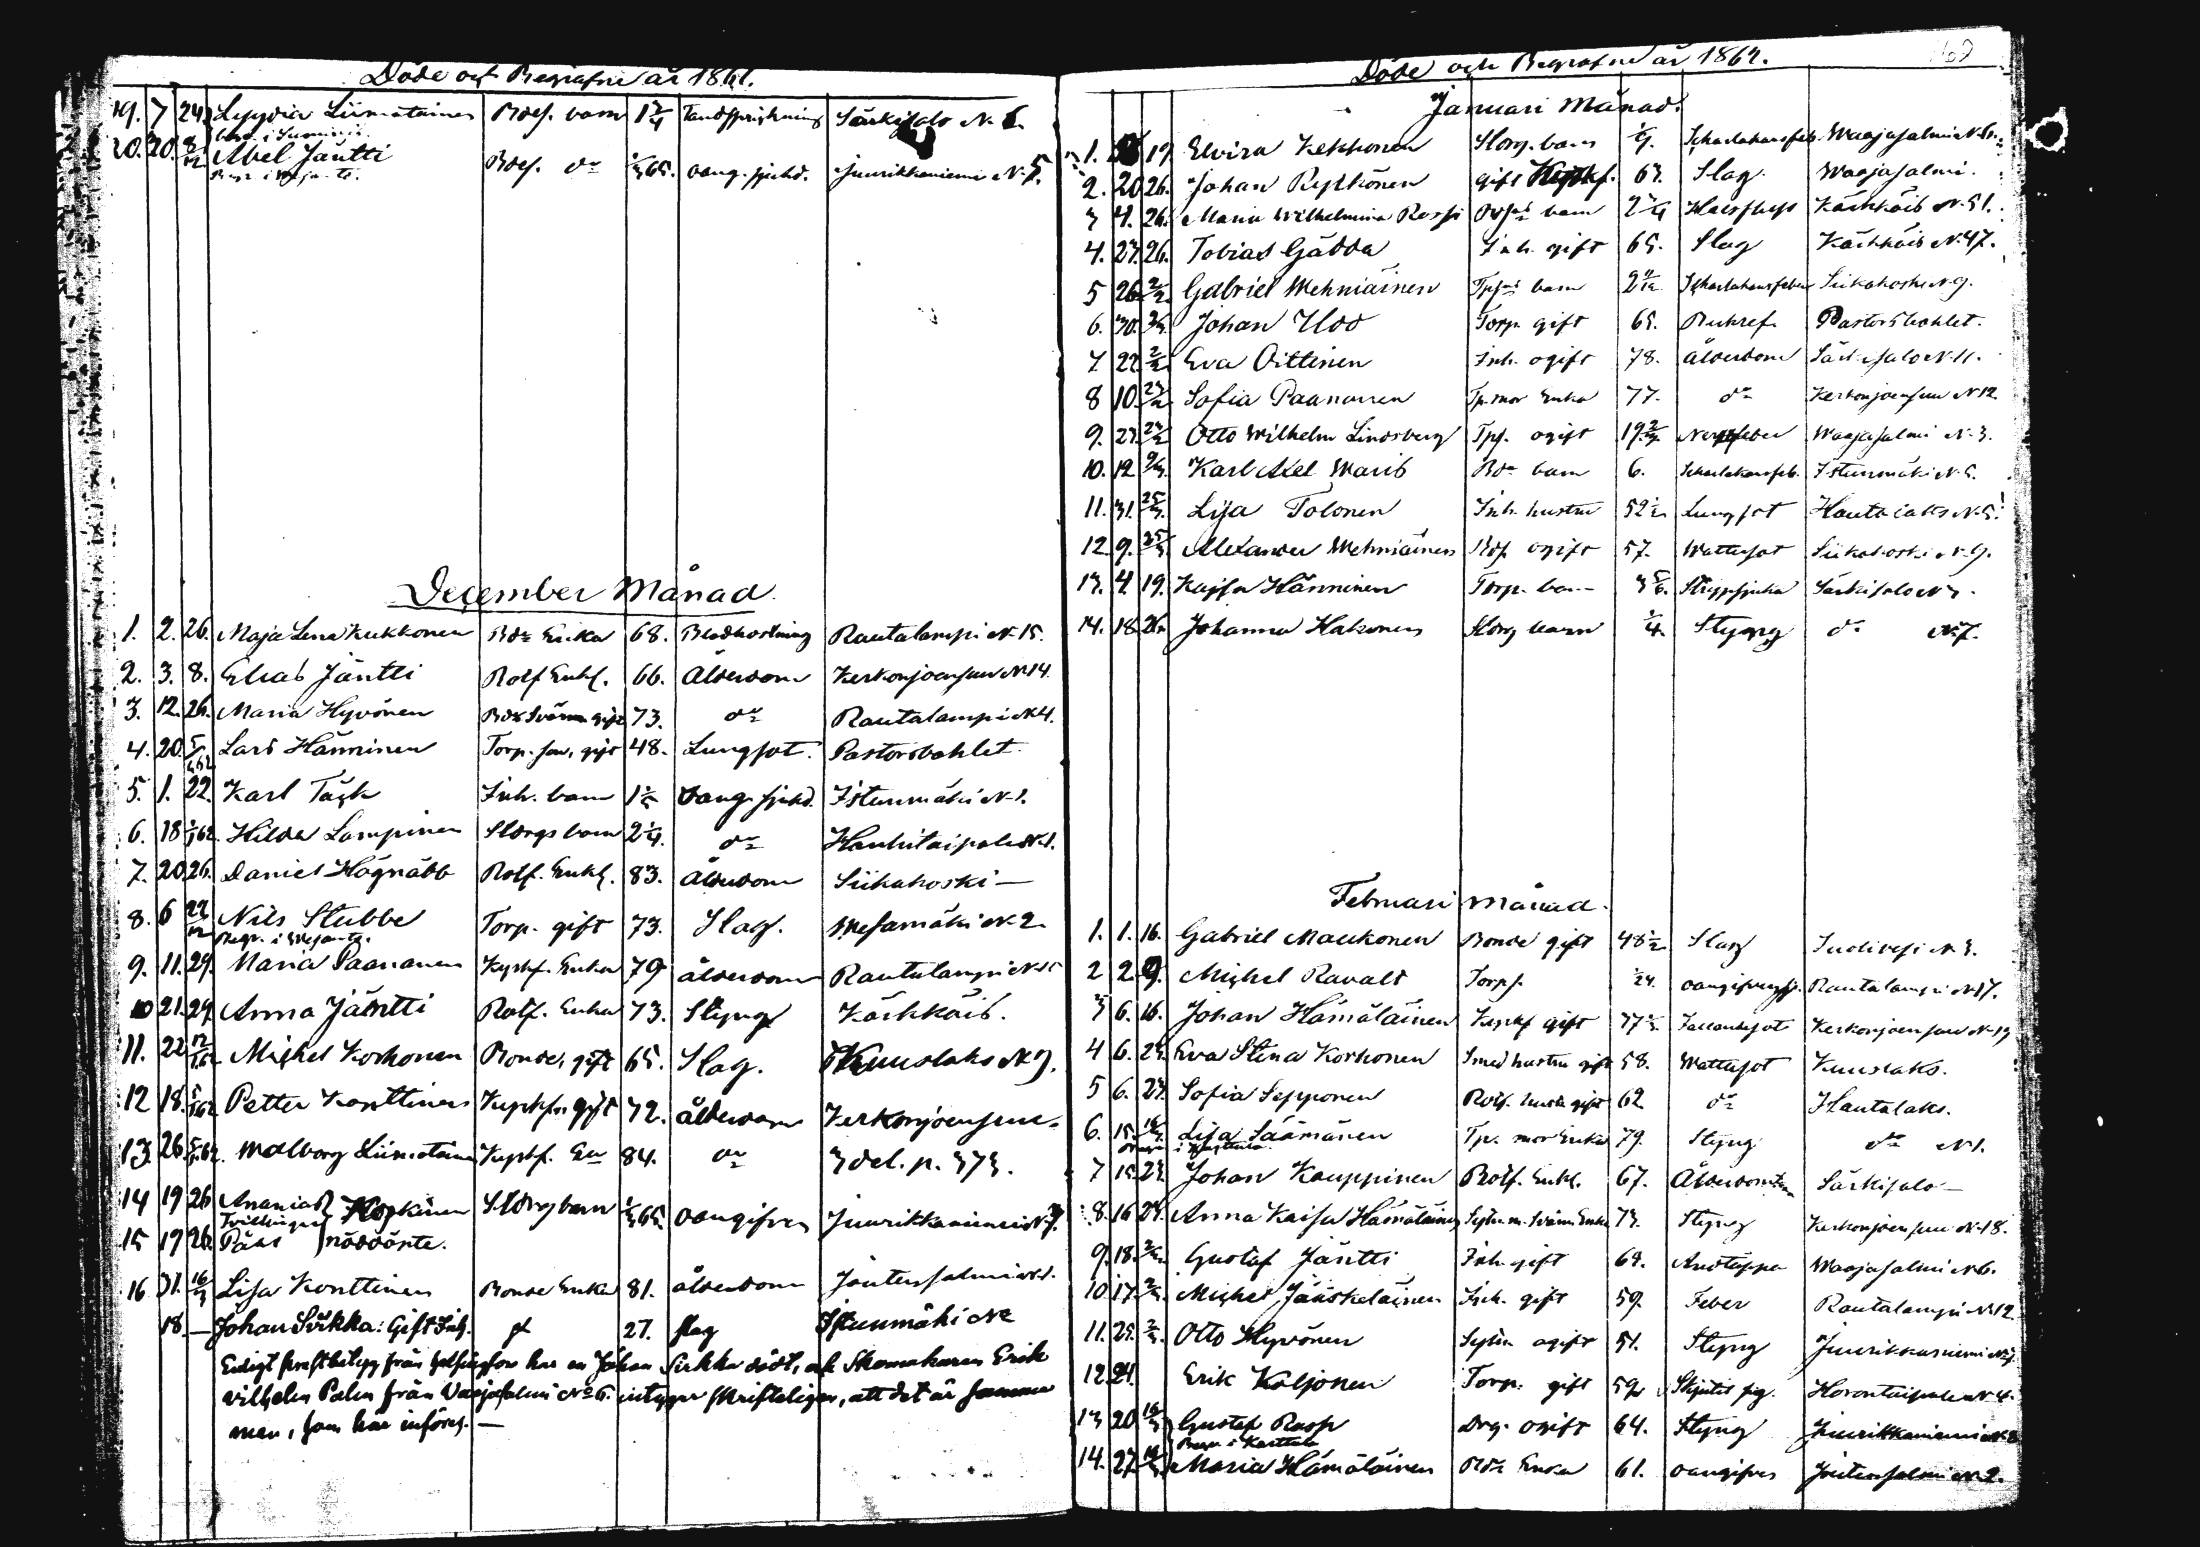 Döde och Begrafne år 1861.
19. 7 24 Lyydia Liimatainen Bdes. barn 1 3/4 Tandsprickning Särkisalo N. 6.
20. 20. 8/12 Abel Jäntti Bdes. do 1/365. oang. sjukd. Juurikkaniemi N. 5.
December Månad.
1. 2. 26. Maja Lena Kukkonen Bde Enka 68. Blodhostning Rautalampi N. 15.
2. 3. 8. Elias Jäntti Rotf. Enkl. 66. Ålderdom Kerkonjoensuu N. 14.
3. 12. 26. Maria Hyvönen gift 73. do Rautalampi N. 4.
4. 20. 5/1 62 Lars Hänninen Torp. son, gift 48. Lungsot. Pastorsbohlet
5. 1. 22. Karl Täck Inh. barn 1 1/2 oang. sjukd. Istunmäki N. 1.
6. 18 1/1 62. Hilda Lampinen Sldrgs barn 2 1/4. do Hankitaipale N. 1.
7. 20 26. Daniel Högnäbb Rotf. Enkl. 83. ålderdom Siikakoski —
8. 6 22/12 Nils Stubbe Torp. gift 73. Slag. Mesamäki N. 2.
Begr. i Wesanto.
9. 11. 29. Maria Paananen Kypkf. Enka 79 ålderdom Rautalampi N. 15
10 21. 29. Anna Jäntti Rotf. Enka 73. Styng Kärkkäis.
11. 22 12/1 62 Michel Korhonen Bonde, gift 65. Slag. Kuuslaks N. 9.
12 18. 5/1 62 Petter Konttinen Kypkf. gift 72. ålderdom Kerkonjoensuu
13. 26. 5/1 62. Walborg Liimatainen Kypkf. Ea 84. do 3 del. p. 373.
14 19 26 Ananias Kopkänen Sldrg barn 1/365. oangifven Juurikkaniemi N. 7.
Tvillingar
15 19 26. Påhl nöddöpte.
16. 31. 16/3 Lisa Konttinen Bonde Enka 81. ålderdom Joutensalmi N. 1.
18. — Johan Sirkka: Gift Inh. 27. slag Istunmäki No
Enligt prestbetyg från Helsingfors har en Johan Sirkka dödt, och Skomakaren Erik
Vilhelm Palen från Vaajasalmi No 6. intygar skrifteligen, att det är samma
man, som här införes. —
Döde och Begrafne år 1862.
Januari Månad.
1. 19 Elvira Kekkonen Sldrg. barn 1/9. Scharlakansfeb. Waajasalmi N. 6.
2. 20 26. Johan Rytkönen gift Kypkf. 63. Slag. Waajasalmi.
3 4. 26. Maria Wilhelmina Rossi barn 2 3/4 Halsfluss Kärkkäis N. 51.
4. 23. 26. Tobias Gädda Inh. gift 65. Slag Kärkkäis N. 47.
5 26 2/2. Gabriel Wehniäinen Tpsns barn 2 9/12 Scharlakansfeber Siikakoski N. 9.
6. 30. Johan Udd Torp. gift 65. Pastorsbohlet.
7 22 2/2 Eva Oittinen Inh. ogift 78. ålderdom Särkisalo N. 11.
8 10. 23/2 Sofia Paananen Tp. mor Enka 77. do Kerkonjoensuu N. 12
9. 23. 23/2 Otto Wilhelm Lindsberg Tps. ogift 19 Nervfeber Waajasalmi N. 3.
10. 12 9/3. Karl Axel Waris Bde barn 6. Scharlakansfeb. Istunmäki N. 5.
11. 31. 25/3. Lisa Tolonen Inh. hustru 52 1/2 Lungsot Hautolaks N. 5.
12 9. 25/3. Alexander Wehniäinen Bds. ogift 57. Wattusot Siikakoski N. 9.
13. 4 19. Kajsa Hänninen Torp. barn 3 5/6. Strypsjuka Särkisalo N. 3.
14. 18 26. Johanna Hakonen Sldrg barn 1/4. Styng do N. 7.
Februari månad.
1. 1. 16. Gabriel Maukonen Bonde gift 48 1/2 Slag Suolivesi N. 3.
2 2. 9. Michel Ravalt Torps. 1/24. oangifven sj. Rautalampi N. 17.
3 6. 16. Johan Hämäläinen Kypkf gift 37 1/2 Fallandesot Kerkonjoensuu N. 19
4 6. 23. Eva Stina Korhonen Smed hustru gift 58. Wattusot Kuuslaks.
5 6. 23. Sofia Sepponen Rotf. hustr. gift 62 do Hautalaks.
6. 15. 16/3. Lisa Säämänen Tp. mor Enka 79. Styng do N. 1.
7 15. 23. Johan Kauppinen Rotf. Enkl. 67. Ålderdom Särkisalo —
8. 16 23. Anna Kaisa Hämäläinen Sytn. m. Svärm. Enka 73. Styng Kerkonjoensuu N. 18.
9. 18. Gustaf Jäntti Inh. gift 69. Andtäppa Waajasalmi N. 6.
10. 17. Michel Jääskeläinen Inh. gift 59. Feber Rautalampi N. 12
11. 25. Otto Hyvönen Sytn. ogift 51. Styng Juurikkaniemi N. 7.
12. 24. Erik Koljonen Torp. gift 59. Skjutit sig. Horontaipale N. 4.
13 20 16/3 Gustaf Rasp Drg. ogift 64. Styng Juurikkaniemi N. 8
Begr. i Karttula
14. 27. 16/3. Maria Hämäläinen Bde Enka 61. oangifven Joutensalmi N. 2.